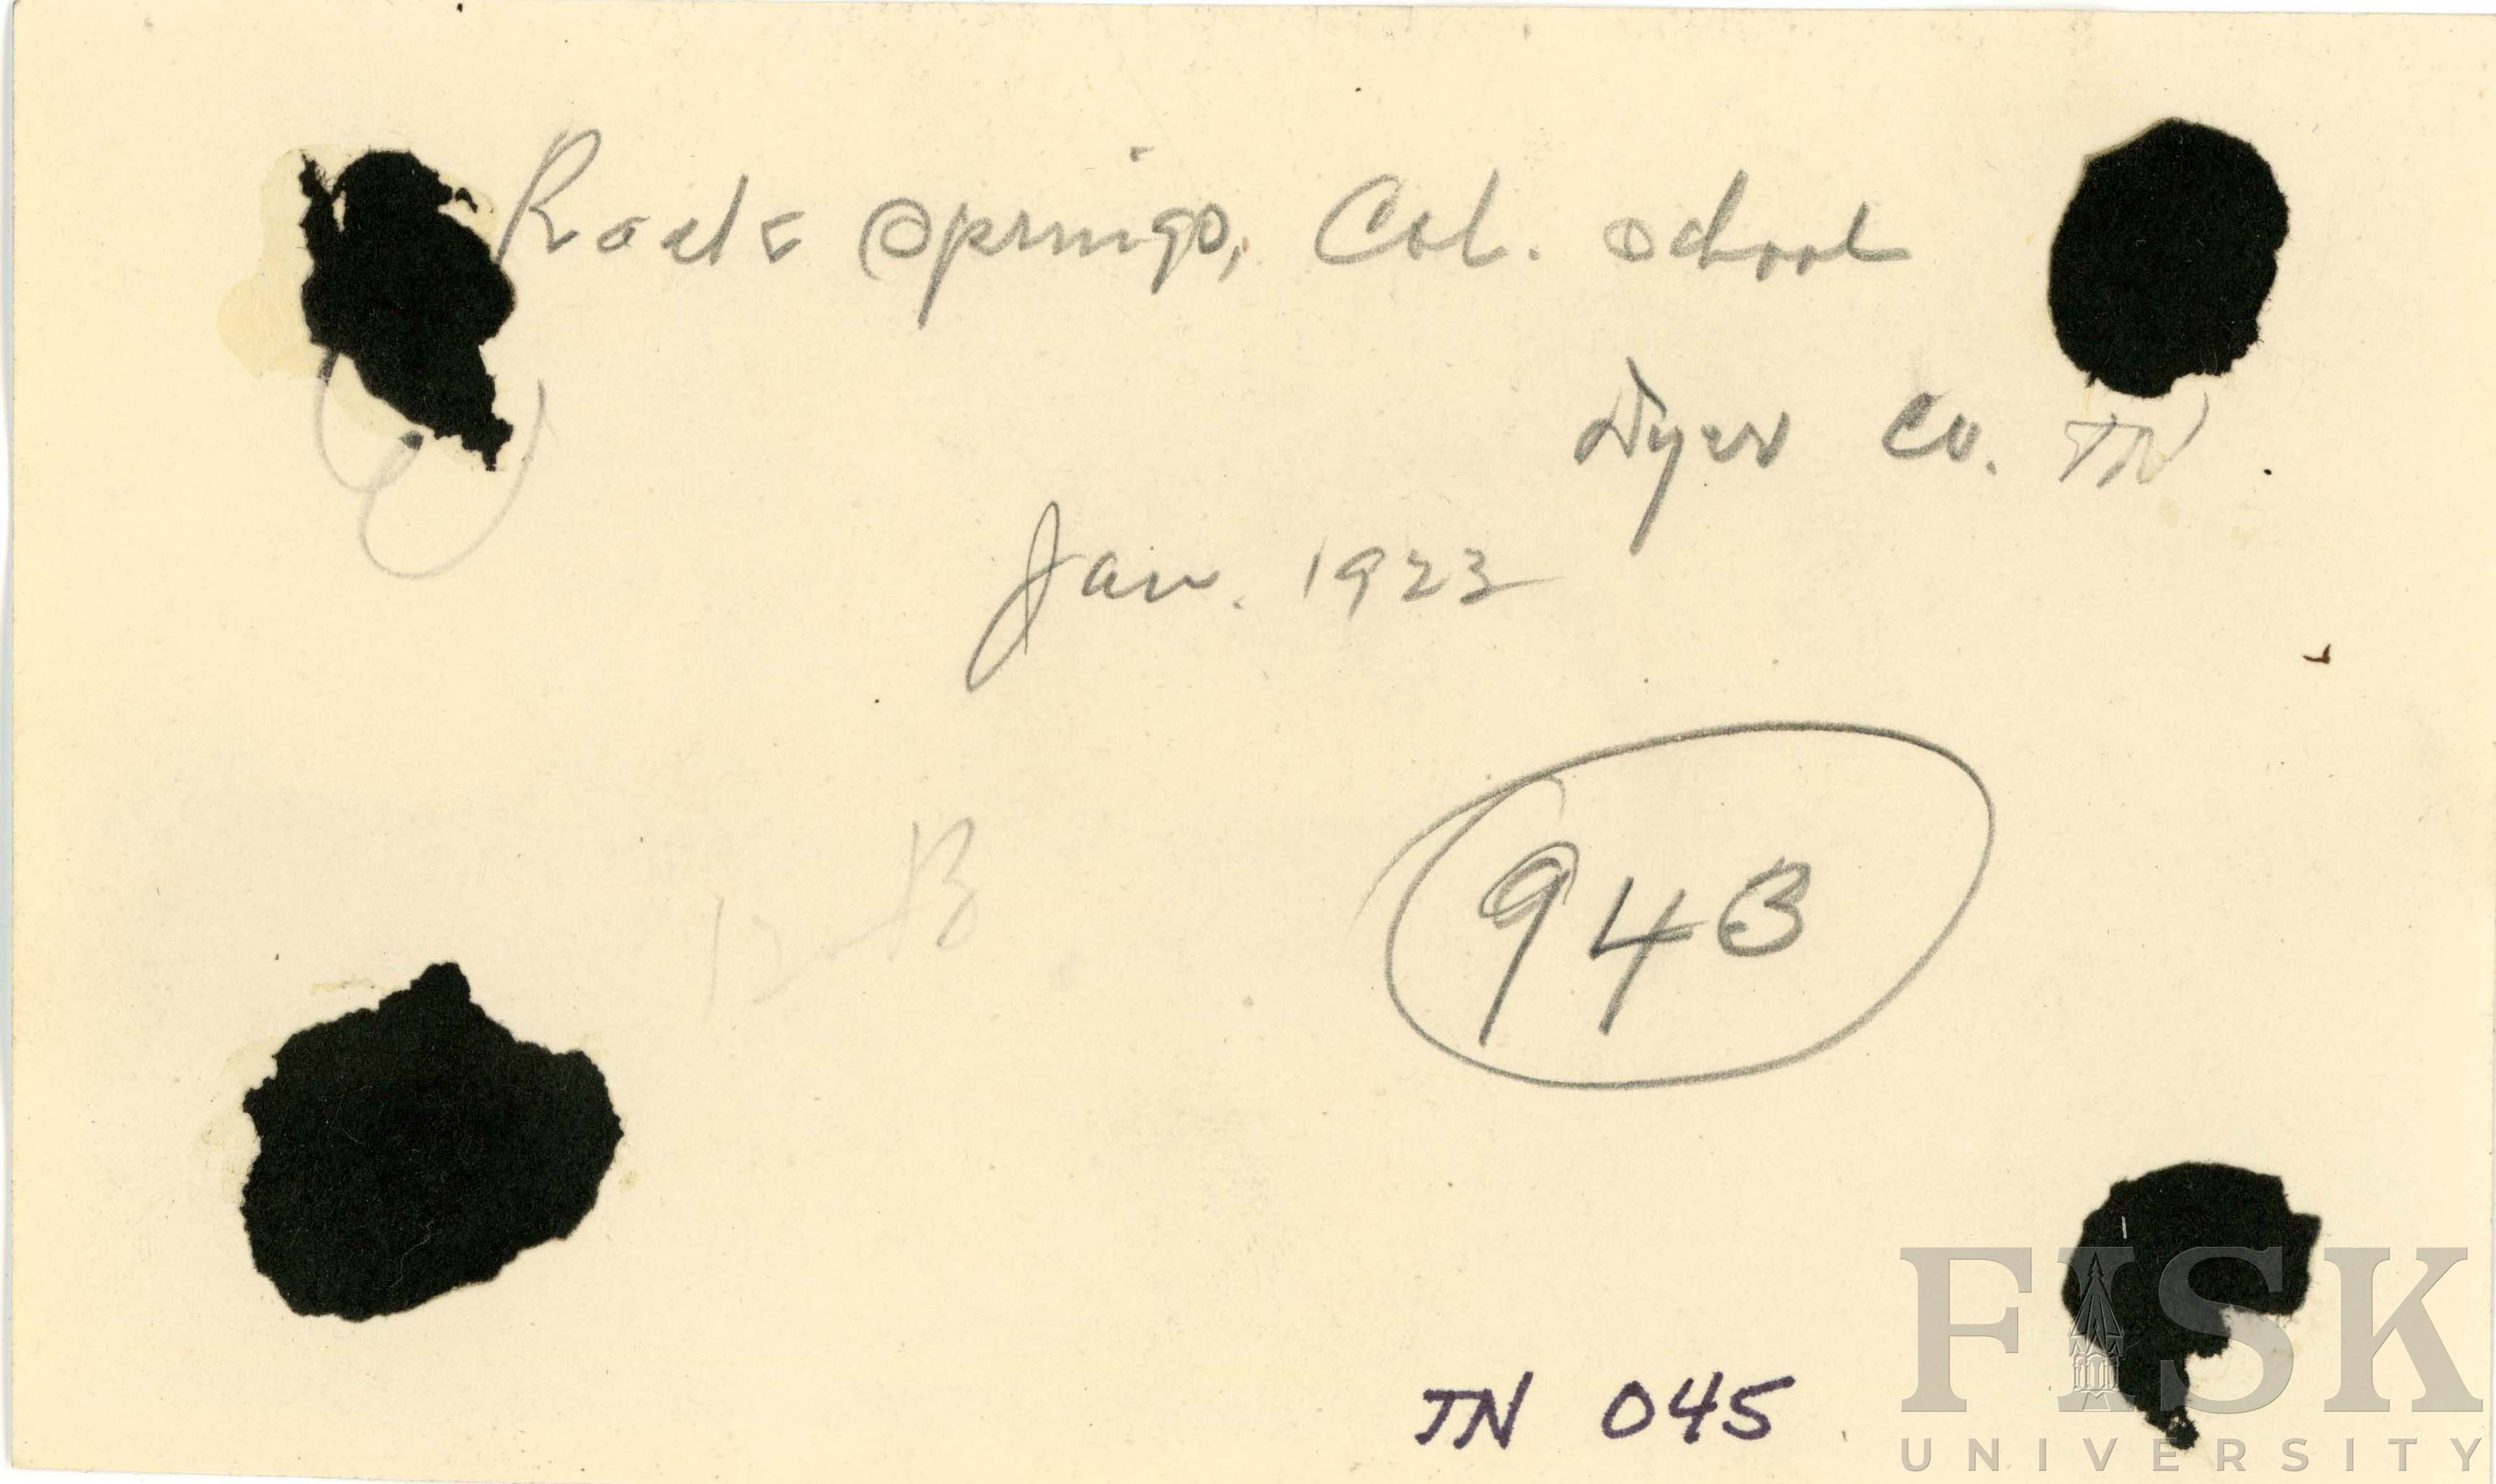 Springs, Col. School
Dyer Co. TN
Jan. 1923
12-B
943
TN 045
FISK
UNIVERSITY